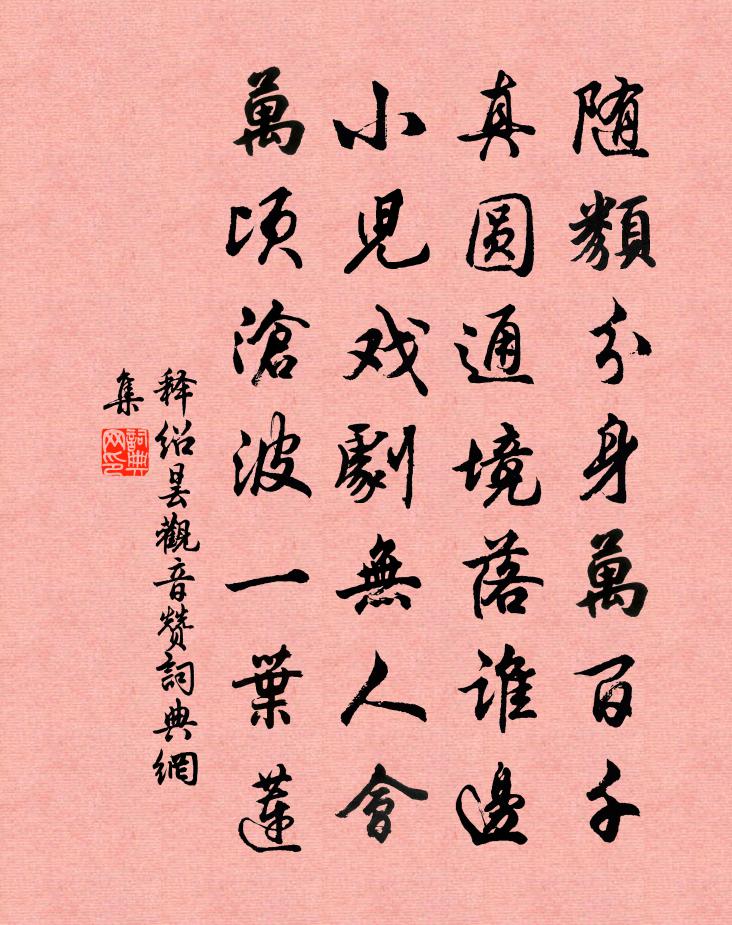 随類分身萬百千
真圆通境落誰邊
小児戏劇無人會
萬頃滄波一葉蓮
释绍曇觀音赞詞典網
集
詞典
网印